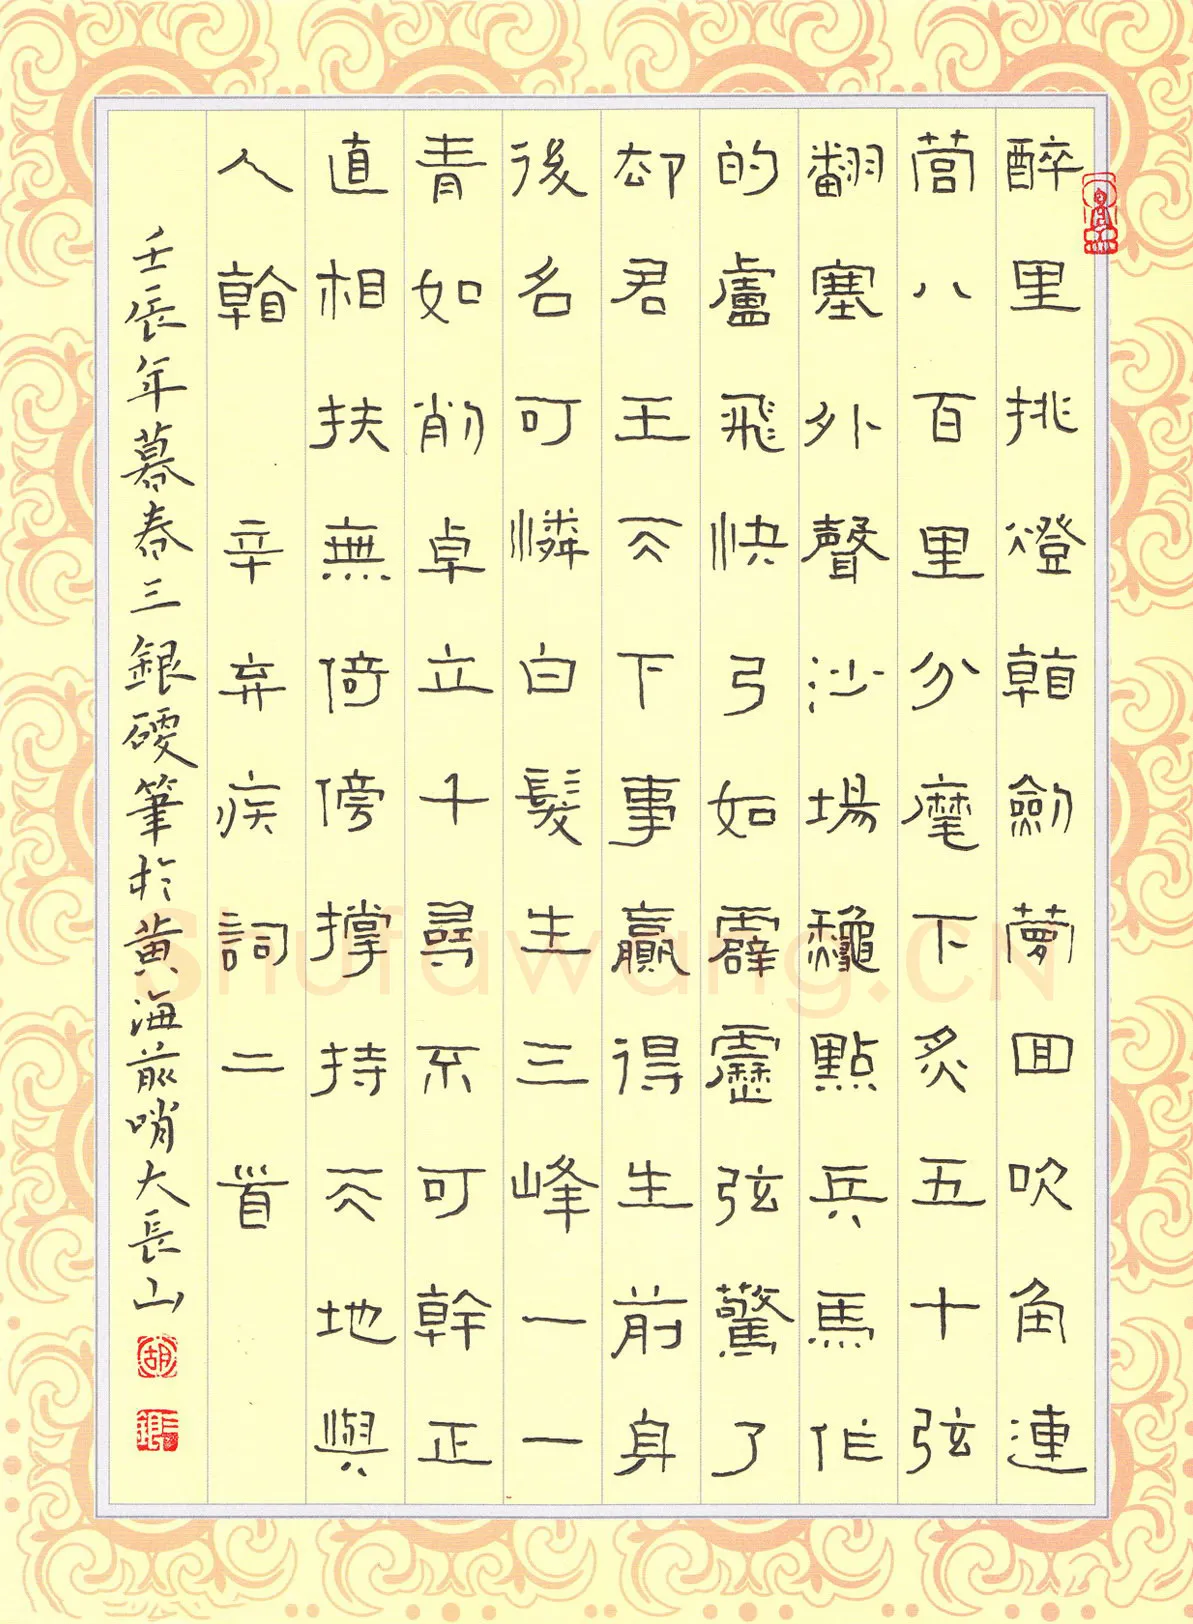 醉里挑燈看劍夢回吹角連
營八百里分麾下炙五十弦
翻塞外聲沙場秋點兵馬作
的盧飛快弓如霹靂弦驚了
却君王天下事贏得生前身
後名可憐白髮生三峰一一
青如削卓立千尋不可幹正
直相扶無倚傍撐持天地與
人看 辛弃疾詞二首
壬辰年暮春三銀硬筆於黄海前哨大長山
胡
三銀
Shufawang.CN